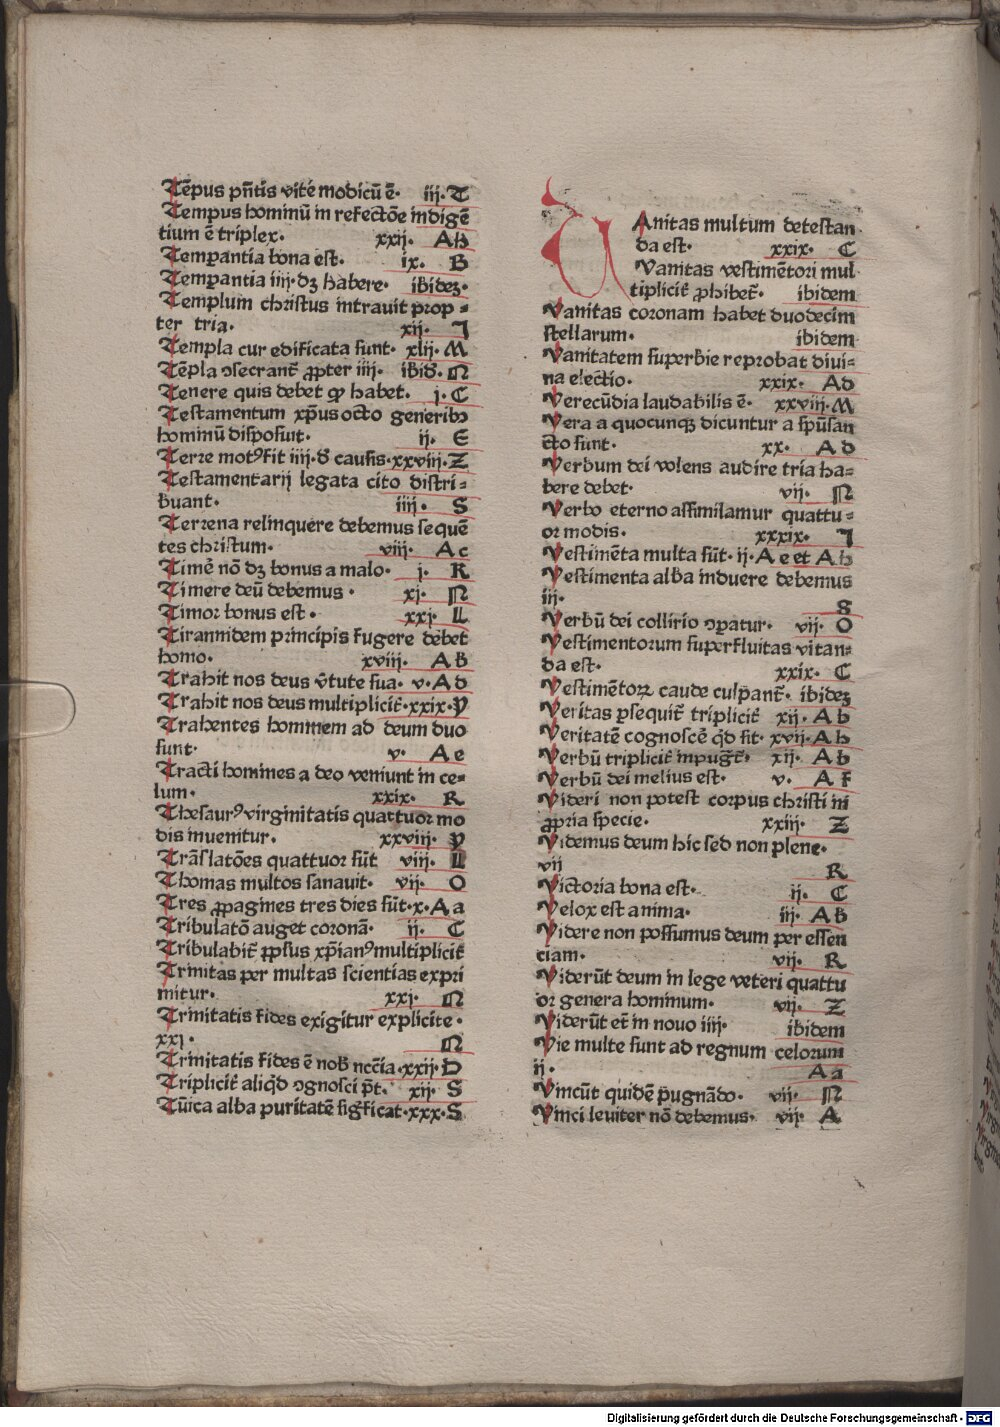 Tēpus pn̄tis vite modicū ē· iij· T
Tempus hominū in refectōe indigē
tium ē triplex· xxij· Ah
Temp̄antia bona est· ix· B
Temp̄antia iiij·dꝫ habere· ibideꝫ·
Templum christus intrauit prop-
ter tria· xij· J
Templa cur edificata sunt· xlij· M
Tēpla ↄsecrant̄ ꝓpter iiij· ibid̄· N
Tenere quis debet qꝫ habet· j· C
Testamentum xp̄us octo generibꝫ
hominū disposuit· ij· E
Terre motꝰfit iiij·d̄ causis·xxviij·Z
Testamentarij legata cito distri-
buant· iiij· S
Terrena relinquere debemus sequē
tes christum· viij· Ac
Timē nō dꝫ bonus a malo· j· R
Timere deū debemus · xj· N
Timor bonus est · xxj· L
Tirannidem principis fugere debet
homo· xviij· AB
Trahit nos deus v̄tute sua· v·Ad
Trahit nos deus multiplicit̄·xxix·Y
Trahentes hominem ad deum duo
sunt· v· Ae
Tracti homines a deo veniunt in ce-
lum· xxix· R
Thesaurꝰvirginitatis quattuor mo
dis inuenitur· xxviij· Y
Trās̄latōes quattuor sūt viij· L
Thomas multos sanauit· vij· O
Tres ꝓpagines tres dies sūt·x·Aa
Tribulatō auget coronā· ij· C
Tribulabit̄ ꝓpsus xp̄ianꝰmultiplicit̄
Trinitas per multas scientias expri
mitur· xxj· N
Trinitatis fides exigitur explicite·
xxj· N
Trinitatis fides ē nob̄ nccīa·xxij·D
Triplicit̄ aliqd̄ ↄgnosci pt̄· xij· S
Tūica alba puritatē siḡficat·xxx·S
UAnitas multum detestan
da est· xxix· C
Vanitas vestimētori mul
tiplicit̄ ꝓhibet̄· ibidem
Vanitas coronam habet duodecim
stellarum· ibidem
Vanitatem superbie reprobat diui-
na electio· xxix· Ad
Verecūdia laudabilis ē· xxviij·M
Vera a quocunqꝫ dicuntur a spūsan
cto sunt· xx· Ad
Verbum dei volens audire tria ha-
bere debet· vij· N
Verbo eterno assimilamur quattu-
or modis· xxxix· J
Vestimēta multa sūt· ij·Ae et Ah
Vestimenta alba induere debemus
iij· g
Verbū dei collirio ↄp̄atur· vij· O
Vestimentorum superfluitas vitan-
da est· xxix· C
Vestimētoꝝ caude culpant̄· ibideꝫ
Veritas p̄sequit̄ triplicit̄ xij· Ab
Veritatē cognoscē qd̄ sit· xvij·Ah
Verbū triplicit̄ inpuḡt̄· xij· Ab
Verbū dei melius est· v· Af
Videri non potest corpus christi in
ꝓpria specie· xxiij· Z
Videmus deum hic sed non plene·
vij R
Victoria bona est· ij· C
Velox est anima· iij· AB
Videre non possumus deum per essen
ciam· vij· R
Viderūt deum in lege veteri quattu
or genera hominum· vij· Z
Viderūt et̄ in nouo iiij· ibidem
Vie multe sunt ad regnum celorum
ij· Aa
Vincūt quidē pugnādo· vij· N
Vinci leuiter nō debemus· vij· A
Digitalisierung gefördert durch die Deutsche Forschungsgemeinschaft - DFG